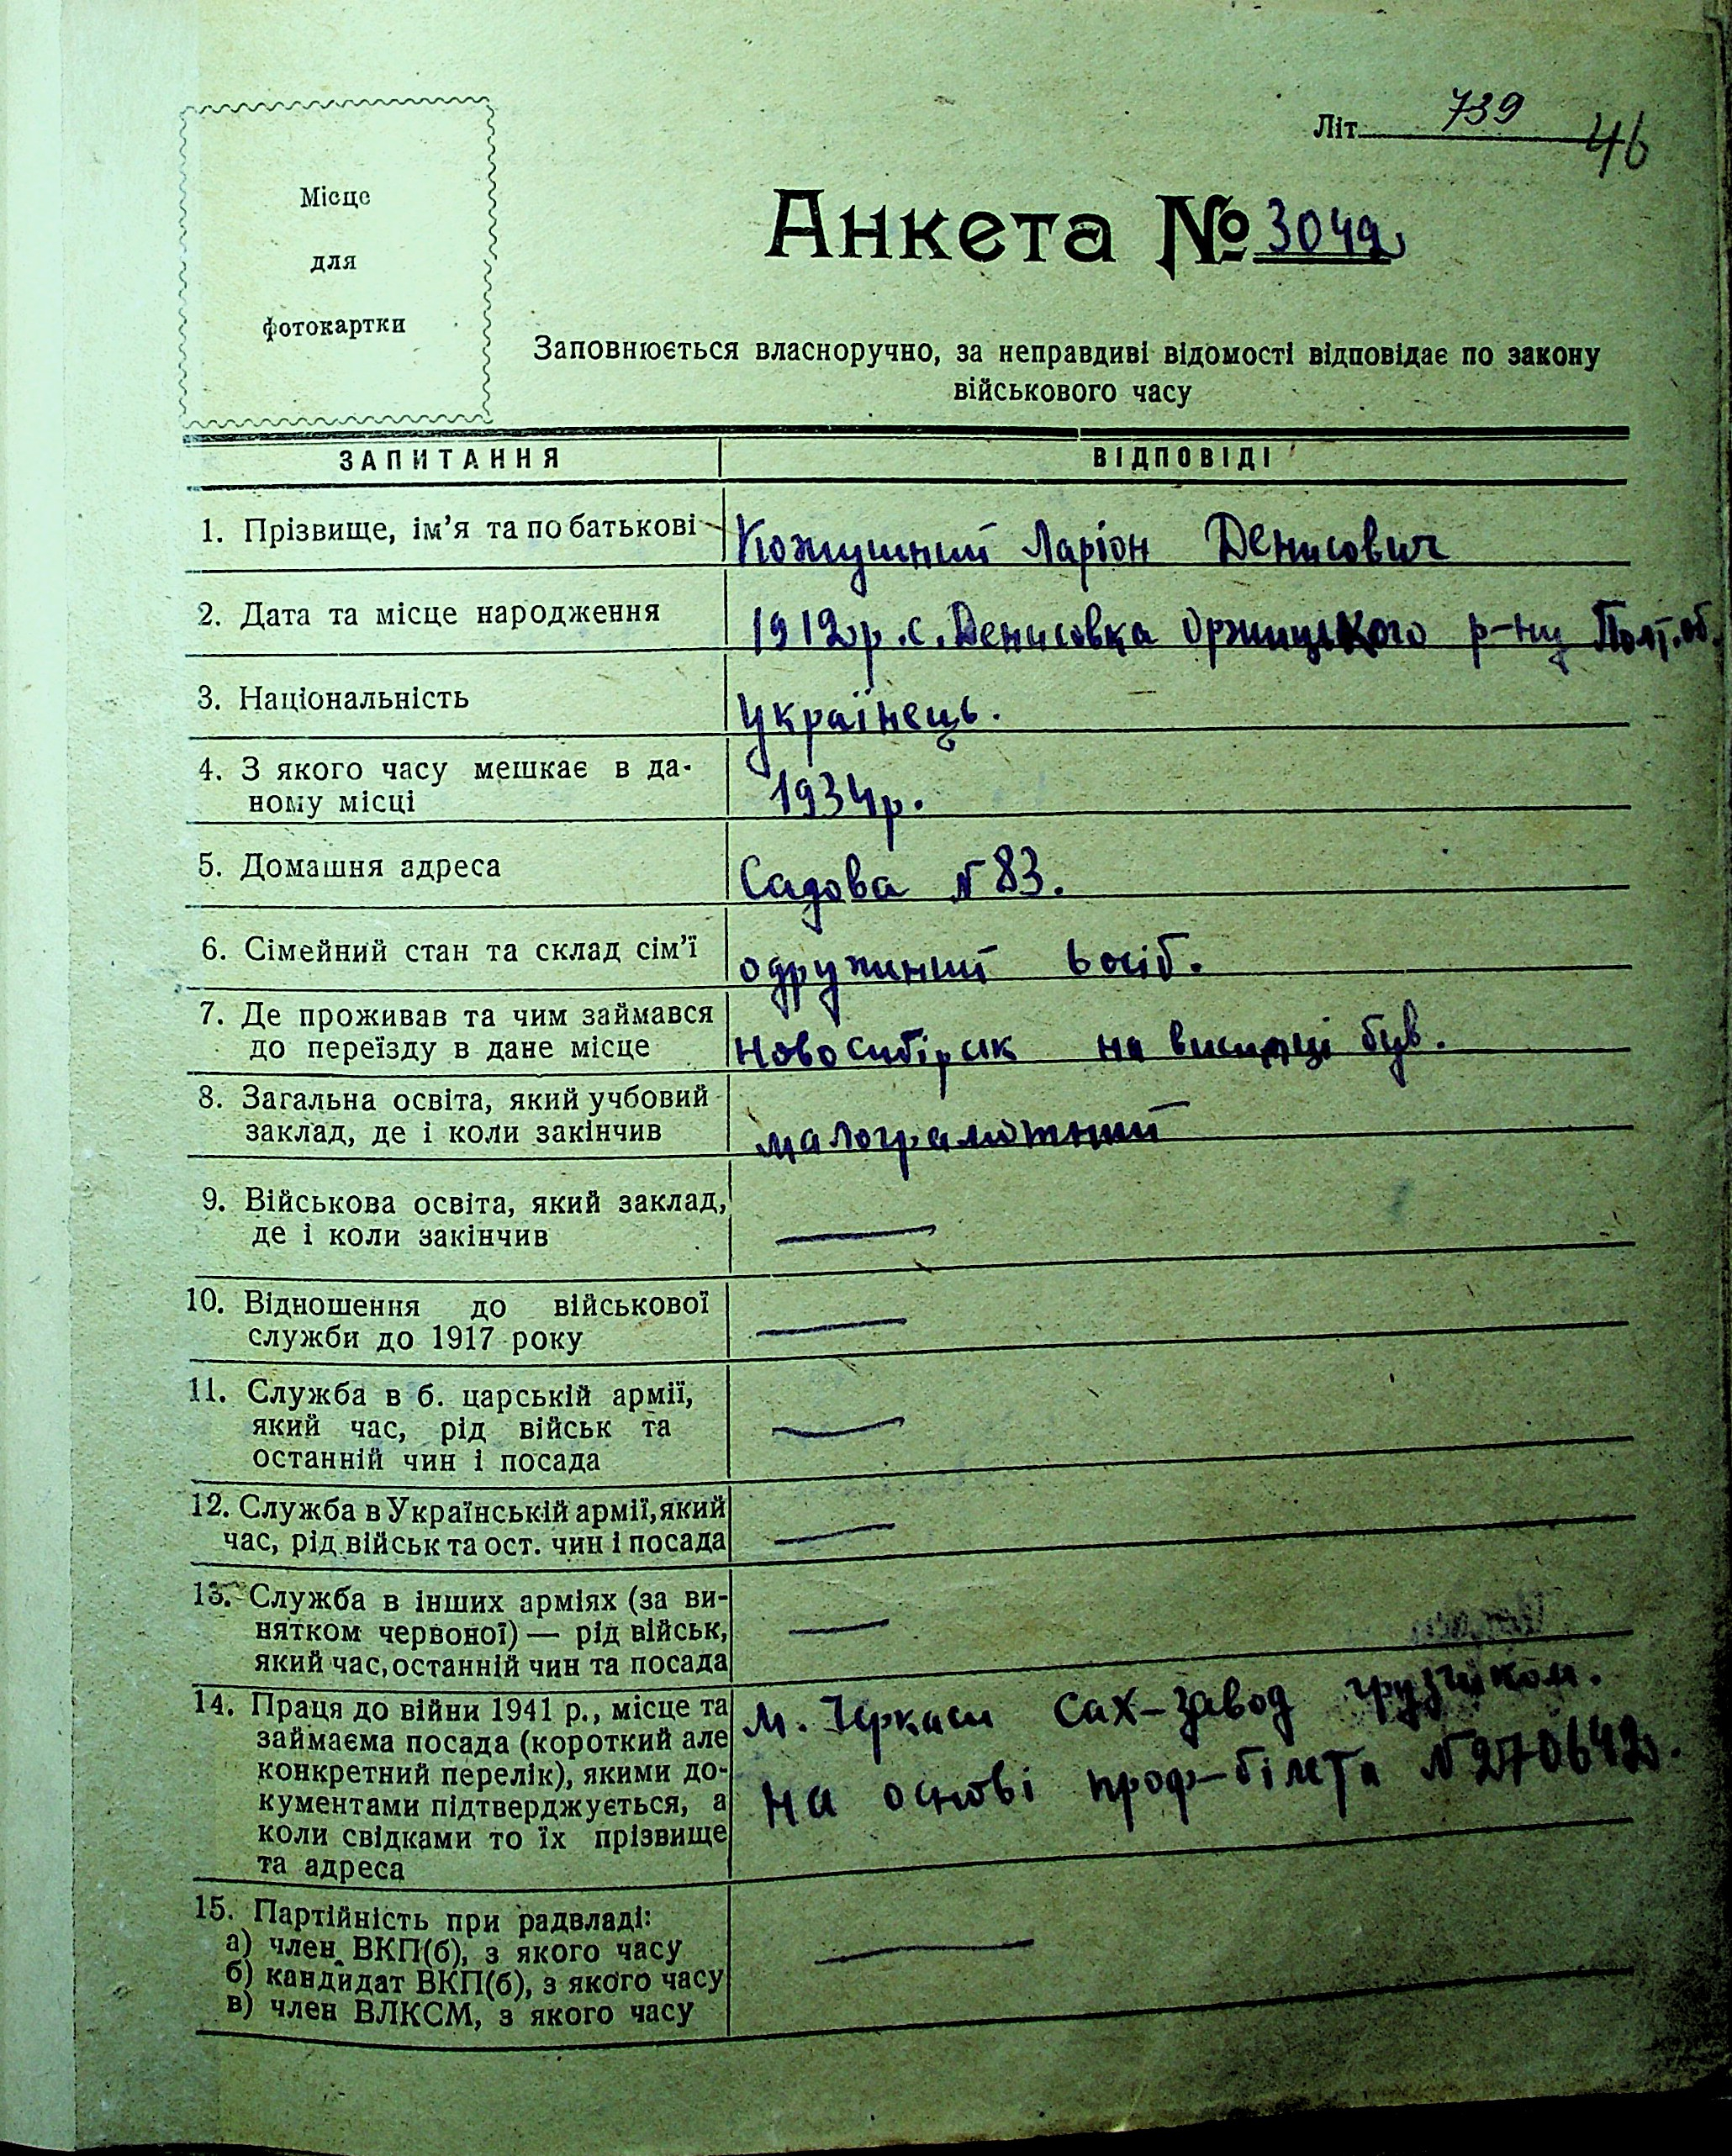 Місце
для
фотокартки
Літ. 739
46
Анкета № 3042
Заповнюється власноручно, за неправдиві відомості відповідає по закону
військового часу
ЗАПИТАННЯ ВІДПОВІДІ
1. Прізвище, ім'я та по батькові Кожушний Ларіон Денисович
2. Дата та місце народження 1912 р. с. Денисовка Оржицького р-ну Полт. об.
3. Національність Українець.
4. З якого часу мешкає в да-
ному місці 1934 р.
5. Домашня адреса Садова N 83.
6. Сімейний стан та склад сім'ї одружиний 6 осіб.
7. Де проживав та чим займався
до переїзду в дане місце Новосибірск на висилці був.
8. Загальна освіта, який учбовий
заклад, де і коли закінчив малограмотний
9. Військова освіта, який заклад,
де і коли закінчив —
10. Відношення до військової
служби до 1917 року —
11. Служба в б. царській армії,
який час, рід військ та
останній чин і посада —
12. Служба в Українській армії, який
час, рід військ та ост. чин і посада —
13. Служба в інших арміях (за ви-
нятком червоної) — рід військ,
який час, останній чин та посада —
14. Праця до війни 1941 р., місце та
займаєма посада (короткий але
конкретний перелік), якими до-
кументами підтверджується, а
коли свідками то їх прізвище
та адреса
м. Черкаси Сах-завод грузчиком.
на основі проф-білета N 270642.
15. Партійність при радвладі:
а) член ВКП(б), з якого часу
б) кандидат ВКП(б), з якого часу —
в) член ВЛКСМ, з якого часу